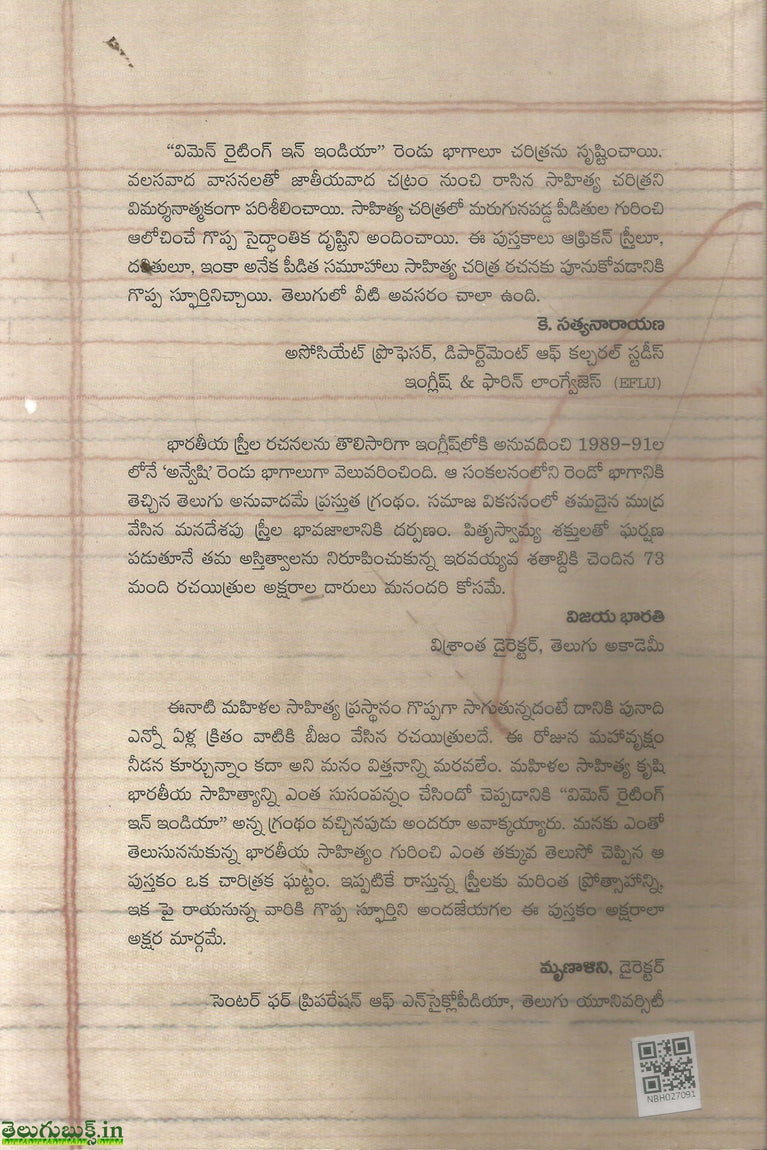 “విమెన్ రైటింగ్ ఇన్ ఇండియా” రెండు భాగాలూ చరిత్రను సృష్టించాయి.
వలసవాద వాసనలతో జాతీయవాద చట్రం నుంచి రాసిన సాహిత్య చరిత్రని
విమర్శనాత్మకంగా పరిశీలించాయి. సాహిత్య చరిత్రలో మరుగునపడ్డ పీడితుల గురించి
ఆలోచించే గొప్ప సైద్ధాంతిక దృష్టిని అందించాయి. ఈ పుస్తకాలు ఆఫ్రికన్ స్త్రీలూ,
దళితులూ, ఇంకా అనేక పీడిత సమూహాలు సాహిత్య చరిత్ర రచనకు పూనుకోవడానికి
గొప్ప స్ఫూర్తినిచ్చాయి. తెలుగులో వీటి అవసరం చాలా ఉంది.
కె. సత్యనారాయణ
అసోసియేట్ ప్రొఫెసర్, డిపార్ట్‌మెంట్ ఆఫ్ కల్చరల్ స్టడీస్
ఇంగ్లీష్ & ఫారిన్ లాంగ్వేజెస్ (EFLU)
భారతీయ స్త్రీల రచనలను తొలిసారిగా ఇంగ్లీష్‌లోకి అనువదించి 1989-91ల
లోనే ‘అన్వేషి’ రెండు భాగాలుగా వెలువరించింది. ఆ సంకలనంలోని రెండో భాగానికి
తెచ్చిన తెలుగు అనువాదమే ప్రస్తుత గ్రంథం. సమాజ వికసనంలో తమదైన ముద్ర
వేసిన మనదేశపు స్త్రీల భావజాలానికి దర్పణం. పితృస్వామ్య శక్తులతో ఘర్షణ
పడుతూనే తమ అస్తిత్వాలను నిరూపించుకున్న ఇరవయ్యవ శతాబ్దికి చెందిన 73
మంది రచయిత్రుల అక్షరాల దారులు మనందరి కోసమే.
విజయ భారతి
విశ్రాంత డైరెక్టర్, తెలుగు అకాడెమీ
ఈనాటి మహిళల సాహిత్య ప్రస్థానం గొప్పగా సాగుతున్నదంటే దానికి పునాది
ఎన్నో ఏళ్ల క్రితం వాటికి బీజం వేసిన రచయిత్రులదే. ఈ రోజున మహావృక్షం
నీడన కూర్చున్నాం కదా అని మనం విత్తనాన్ని మరవలేం. మహిళల సాహిత్య కృషి
భారతీయ సాహిత్యాన్ని ఎంత సుసంపన్నం చేసిందో చెప్పడానికి “విమెన్ రైటింగ్
ఇన్ ఇండియా” అన్న గ్రంథం వచ్చినపుడు అందరూ అవాక్కయ్యారు. మనకు ఎంతో
తెలుసుననుకున్న భారతీయ సాహిత్యం గురించి ఎంత తక్కువ తెలుసో చెప్పిన ఆ
పుస్తకం ఒక చారిత్రక ఘట్టం. ఇప్పటికే రాస్తున్న స్త్రీలకు మరింత ప్రోత్సాహాన్ని,
ఇక పై రాయనున్న వారికి గొప్ప స్ఫూర్తిని అందజేయగల ఈ పుస్తకం అక్షరాలా
అక్షర మార్గమే.
మృణాళిని, డైరెక్టర్
సెంటర్ ఫర్ ప్రిపరేషన్ ఆఫ్ ఎన్‌సైక్లోపీడియా, తెలుగు యూనివర్సిటీ
NBH027091
తెలుగుబుక్స్.in